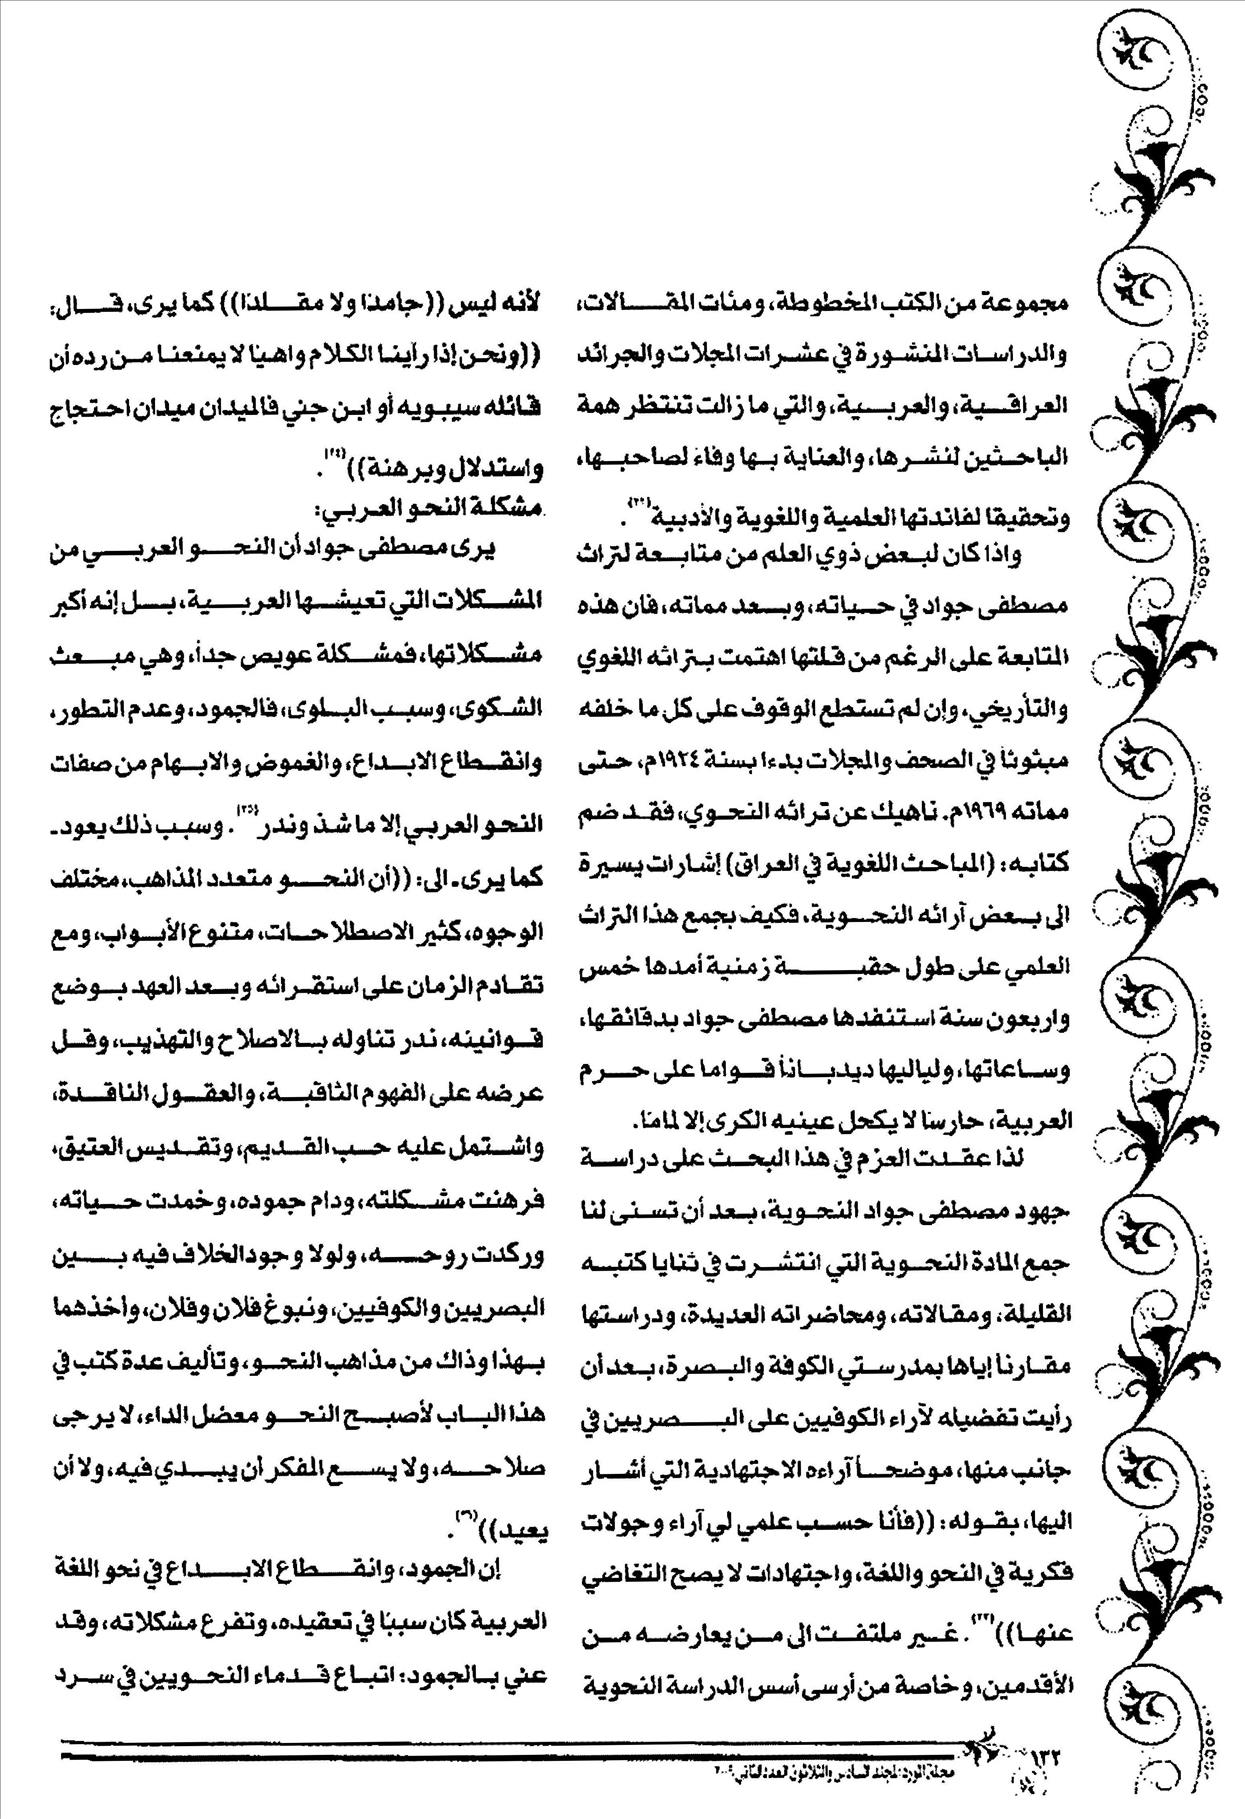 مجموعة من الكتب المخطوطة، ومئات المقالات،
والدراسات المنشورة في عشرات المجلات والجرائد
العراقية، والعربية، والتي ما زالت تنتظر همة
الباحثين لنشرها، والعناية بها وفاءً لصاحبها،
وتحقيقا لفائدتها العلمية واللغوية والأدبية.
واذا كان لبعض ذوي العلم من متابعة لتراث
مصطفى جواد في حياته، وبعد مماته، فان هذه
المتابعة على الرغم من قلتها اهتمت بتراثه اللغوي
والتأريخي، وإن لم تستطع الوقوف على كل ما خلفه
مبثوثاً في الصحف والمجلات بدءا بسنة ١٩٢٤م، حتى
مماته ١٩٦٩م. ناهيك عن تراثه النحوي، فقد ضم
كتابه: (المباحث اللغوية في العراق) إشارات يسيرة
الى بعض آرائه النحوية، فكيف بجمع هذا التراث
العلمي على طول حقبة زمنية أمدها خمس
واربعون سنة استنفدها مصطفى جواد بدقائقها،
وساعاتها، ولياليها ديدباناً قواما على حرم
العربية، حارسا لا يكحل عينيه الكرى إلا لماما.
لذا عقدت العزم في هذا البحث على دراسة
جهود مصطفى جواد النحوية، بعد أن تسنى لنا
جمع المادة النحوية التي انتشرت في ثنايا كتبه
القليلة، ومقالاته، ومحاضراته العديدة، ودراستها
مقارناً إياها بمدرستي الكوفة والبصرة، بعد أن
رأيت تفضيله لآراء الكوفيين على البصريين في
جانب منها، موضحاً آراءه الاجتهادية التي أشار
اليها، بقوله: ((فأنا حسب علمي لي آراء وجولات
فكرية في النحو واللغة، واجتهادات لا يصح التغاضي
عنها))(٢٣). غير ملتفت الى من يعارضه من
الأقدمين، وخاصة من أرسى أسس الدراسة النحوية
لأنه ليس ((جامدًا ولا مقلدًا)) كما يرى، قال:
((ونحن إذا رأينا الكلام واهيًا لا يمنعنا من رده أن
قائله سيبويه أو ابن جني فالميدان ميدان احتجاج
واستدلال وبرهنة))(٢٤).
مشكلة النحو العربي:
يرى مصطفى جواد أن النحو العربي من
المشكلات التي تعيشها العربية، بل إنه أكبر
مشكلاتها، فمشكلة عويص جداً، وهي مبعث
الشكوى، وسبب البلوى، فالجمود، وعدم التطور،
وانقطاع الابداع، والغموض والابهام من صفات
النحو العربي إلا ما شذ وندر(٢٥). وسبب ذلك يعود-
كما يرى- الى: ((أن النحو متعدد المذاهب، مختلف
الوجوه، كثير الاصطلاحات، متنوع الأبواب، ومع
تقادم الزمان على استقرائه وبعد العهد بوضع
قوانينه، ندر تناوله بالاصلاح والتهذيب، وقل
عرضه على الفهوم الثاقبة، والعقول الناقدة،
واشتمل عليه حب القديم، وتقديس العتيق،
فرهنت مشكلته، ودام جموده، وخمدت حياته،
وركدت روحه، ولولا وجود الخلاف فيه بين
البصريين والكوفيين، ونبوغ فلان وفلان، وأخذهما
بهذا وذاك من مذاهب النحو، وتأليف عدة كتب في
هذا الباب لأصبح النحو معضل الداء، لا يرجى
صلاحه، ولا يسع المفكر أن يبدي فيه، ولا أن
يعيد)).
إن الجمود، وانقطاع الابداع في نحو اللغة
العربية كان سببًا في تعقيده، وتفرع مشكلاته، وقد
عني بالجمود: اتباع قدماء النحويين في سرد
١٣٢
مجلة المورد المجلد السادس والثلاثون العدد الثاني ٢٠٠٩